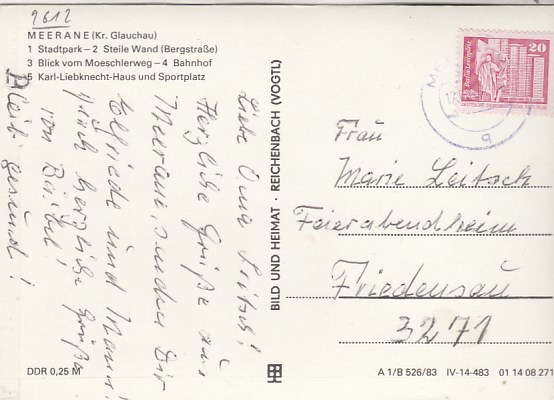 9612
MEERANE (Kr. Glauchau)
1 Stadtpark – 2 Steile Wand (Bergstraße)
3 Blick vom Moeschlerweg – 4 Bahnhof
5 Karl-Liebknecht-Haus und Sportplatz
Liebe Oma Leitsch!
Herzliche Grüße aus
Meerane, senden Dir
Elfriede und Mann!
Auch herzliche Grüße
von Bärbel!
Bleib gesund!
BILD UND HEIMAT · REICHENBACH (VOGTL)
20
Frau
Marie Leitsch
Feierabendheim
Friedensau
3271
DDR 0,25 M
A 1/B 526/83 IV-14-483 01 14 08 271